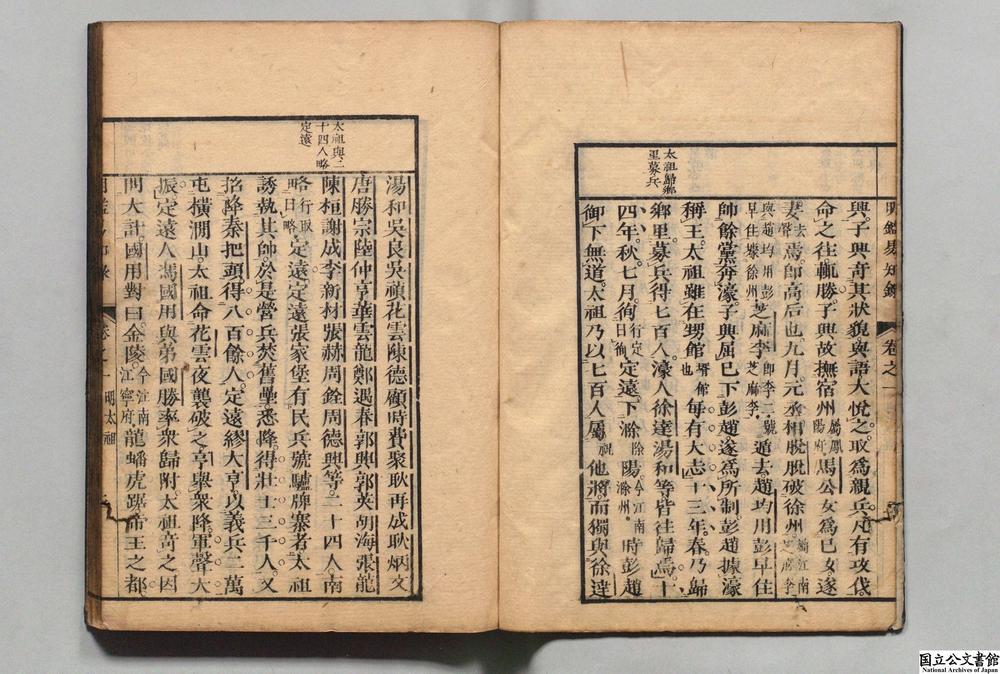 太祖歸鄉
里募兵
明鑑易知錄
卷之一
興子興奇其狀貌與語大悅之取為親兵凡有攻伐
命之往輒勝子興故撫宿州屬鳳陽府馬公女為己女遂
妻去聲焉即高后也九月元丞相脫脫破徐州屬江南芝麻李
與趙均用彭早住據徐州芝麻李即李二號芝麻李遁去趙均用彭早住
帥餘黨奔濠子興屈己下彭趙遂為所制彭趙據濠
稱王太祖雖在甥館壻館也每有大志十三年春乃歸
鄉里募兵得七百人濠人徐達湯和等皆往歸焉十
四年秋七月徇行定曰徇定遠下滁除陽今江南滁州時彭趙
御下無道太祖乃以七百人屬祝他將而獨與徐達
太祖與二
十四人略
定遠
湯和吳良吳禎花雲陳德顧時費聚耿再成耿炳文
唐勝宗陸仲亨華雲龍鄭遇春郭興郭英胡海張龍
陳桓謝成李新材張赫周銓周德興等二十四人南
略行取曰略定遠定遠張家堡有民兵號驢牌寨者太祖
誘執其帥於是營兵焚舊壘悉降得壯士三千人又
招降秦把頭得八百餘人定遠繆大亨以義兵二萬
屯橫澗山太祖命花雲夜襲破之亨舉眾降軍聲大
振定遠人馮國用與弟國勝率眾歸附太祖奇之因
問大計國用對曰金陵今江南江寧府龍蟠虎踞帝王之都
卷之一
明太祖
国立公文書館
National Archives of Japan